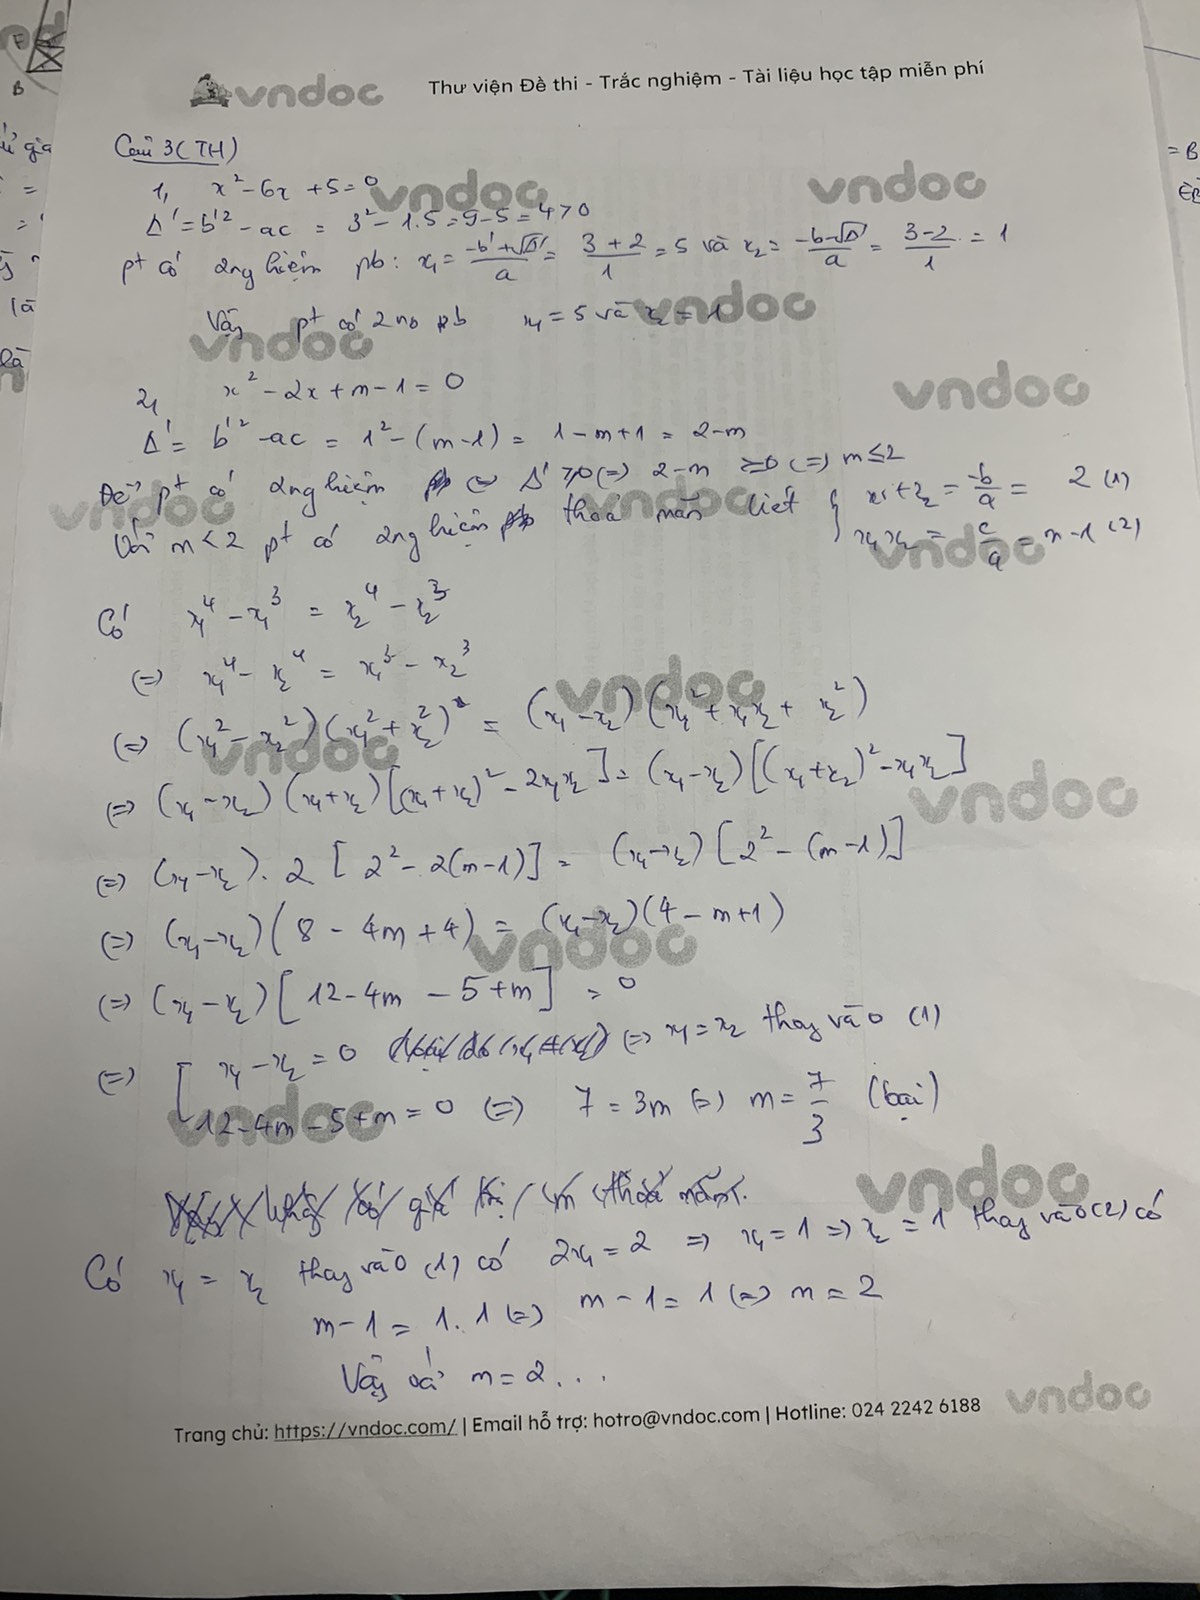 vndoc Thư viện Đề thi - Trắc nghiệm - Tài liệu học tập miễn phí
Câu 3 (TH)
1, x² - 6x + 5 = 0
Δ' = b'² - ac = 3² - 1.5 = 9 - 5 = 4 > 0
pt có 2 nghiệm pb: x₁ = (-b' + √Δ')/a = (3 + 2)/1 = 5 và x₂ = (-b - √Δ')/a = (3 - 2)/1 = 1
Vậy pt có 2 no pb x₁ = 5 và x₂ = 1
2, x² - 2x + m - 1 = 0
Δ' = b'² - ac = 1² - (m - 1) = 1 - m + 1 = 2 - m
Để pt có 2 nghiệm ⇔ Δ' ≥ 0 (=) 2 - m ≥ 0 (=) m ≤ 2
Với m < 2 pt có 2 nghiệm thoả mãn viét { x₁ + x₂ = -b/a = 2 (1)
x₁x₂ = c/a = m - 1 (2)
Có x₁⁴ - x₁³ = x₂⁴ - x₂³
(=) x₁⁴ - x₂⁴ = x₁³ - x₂³
(=) (x₁² - x₂²)(x₁² + x₂²) = (x₁ - x₂)(x₁² + x₁x₂ + x₂²)
(=) (x₁ - x₂)(x₁ + x₂)[(x₁ + x₂)² - 2x₁x₂] = (x₁ - x₂)[(x₁ + x₂)² - x₁x₂]
(=) (x₁ - x₂). 2 [2² - 2(m - 1)] = (x₁ - x₂)[2² - (m - 1)]
(=) (x₁ - x₂)(8 - 4m + 4) = (x₁ - x₂)(4 - m + 1)
(=) (x₁ - x₂)[12 - 4m - 5 + m] = 0
(=) [ x₁ - x₂ = 0 (=) x₁ = x₂ thay vào (1)
12 - 4m - 5 + m = 0 (=) 7 = 3m (=) m = 7/3 (loại)
Có x₁ = x₂ thay vào (1) có 2x₁ = 2 => x₁ = 1 => x₂ = 1 thay vào (2) có
m - 1 = 1.1 (=) m - 1 = 1 (=) m = 2
Vậy với m = 2 ...
Trang chủ: https://vndoc.com/ | Email hỗ trợ: hotro@vndoc.com | Hotline: 024 2242 6188